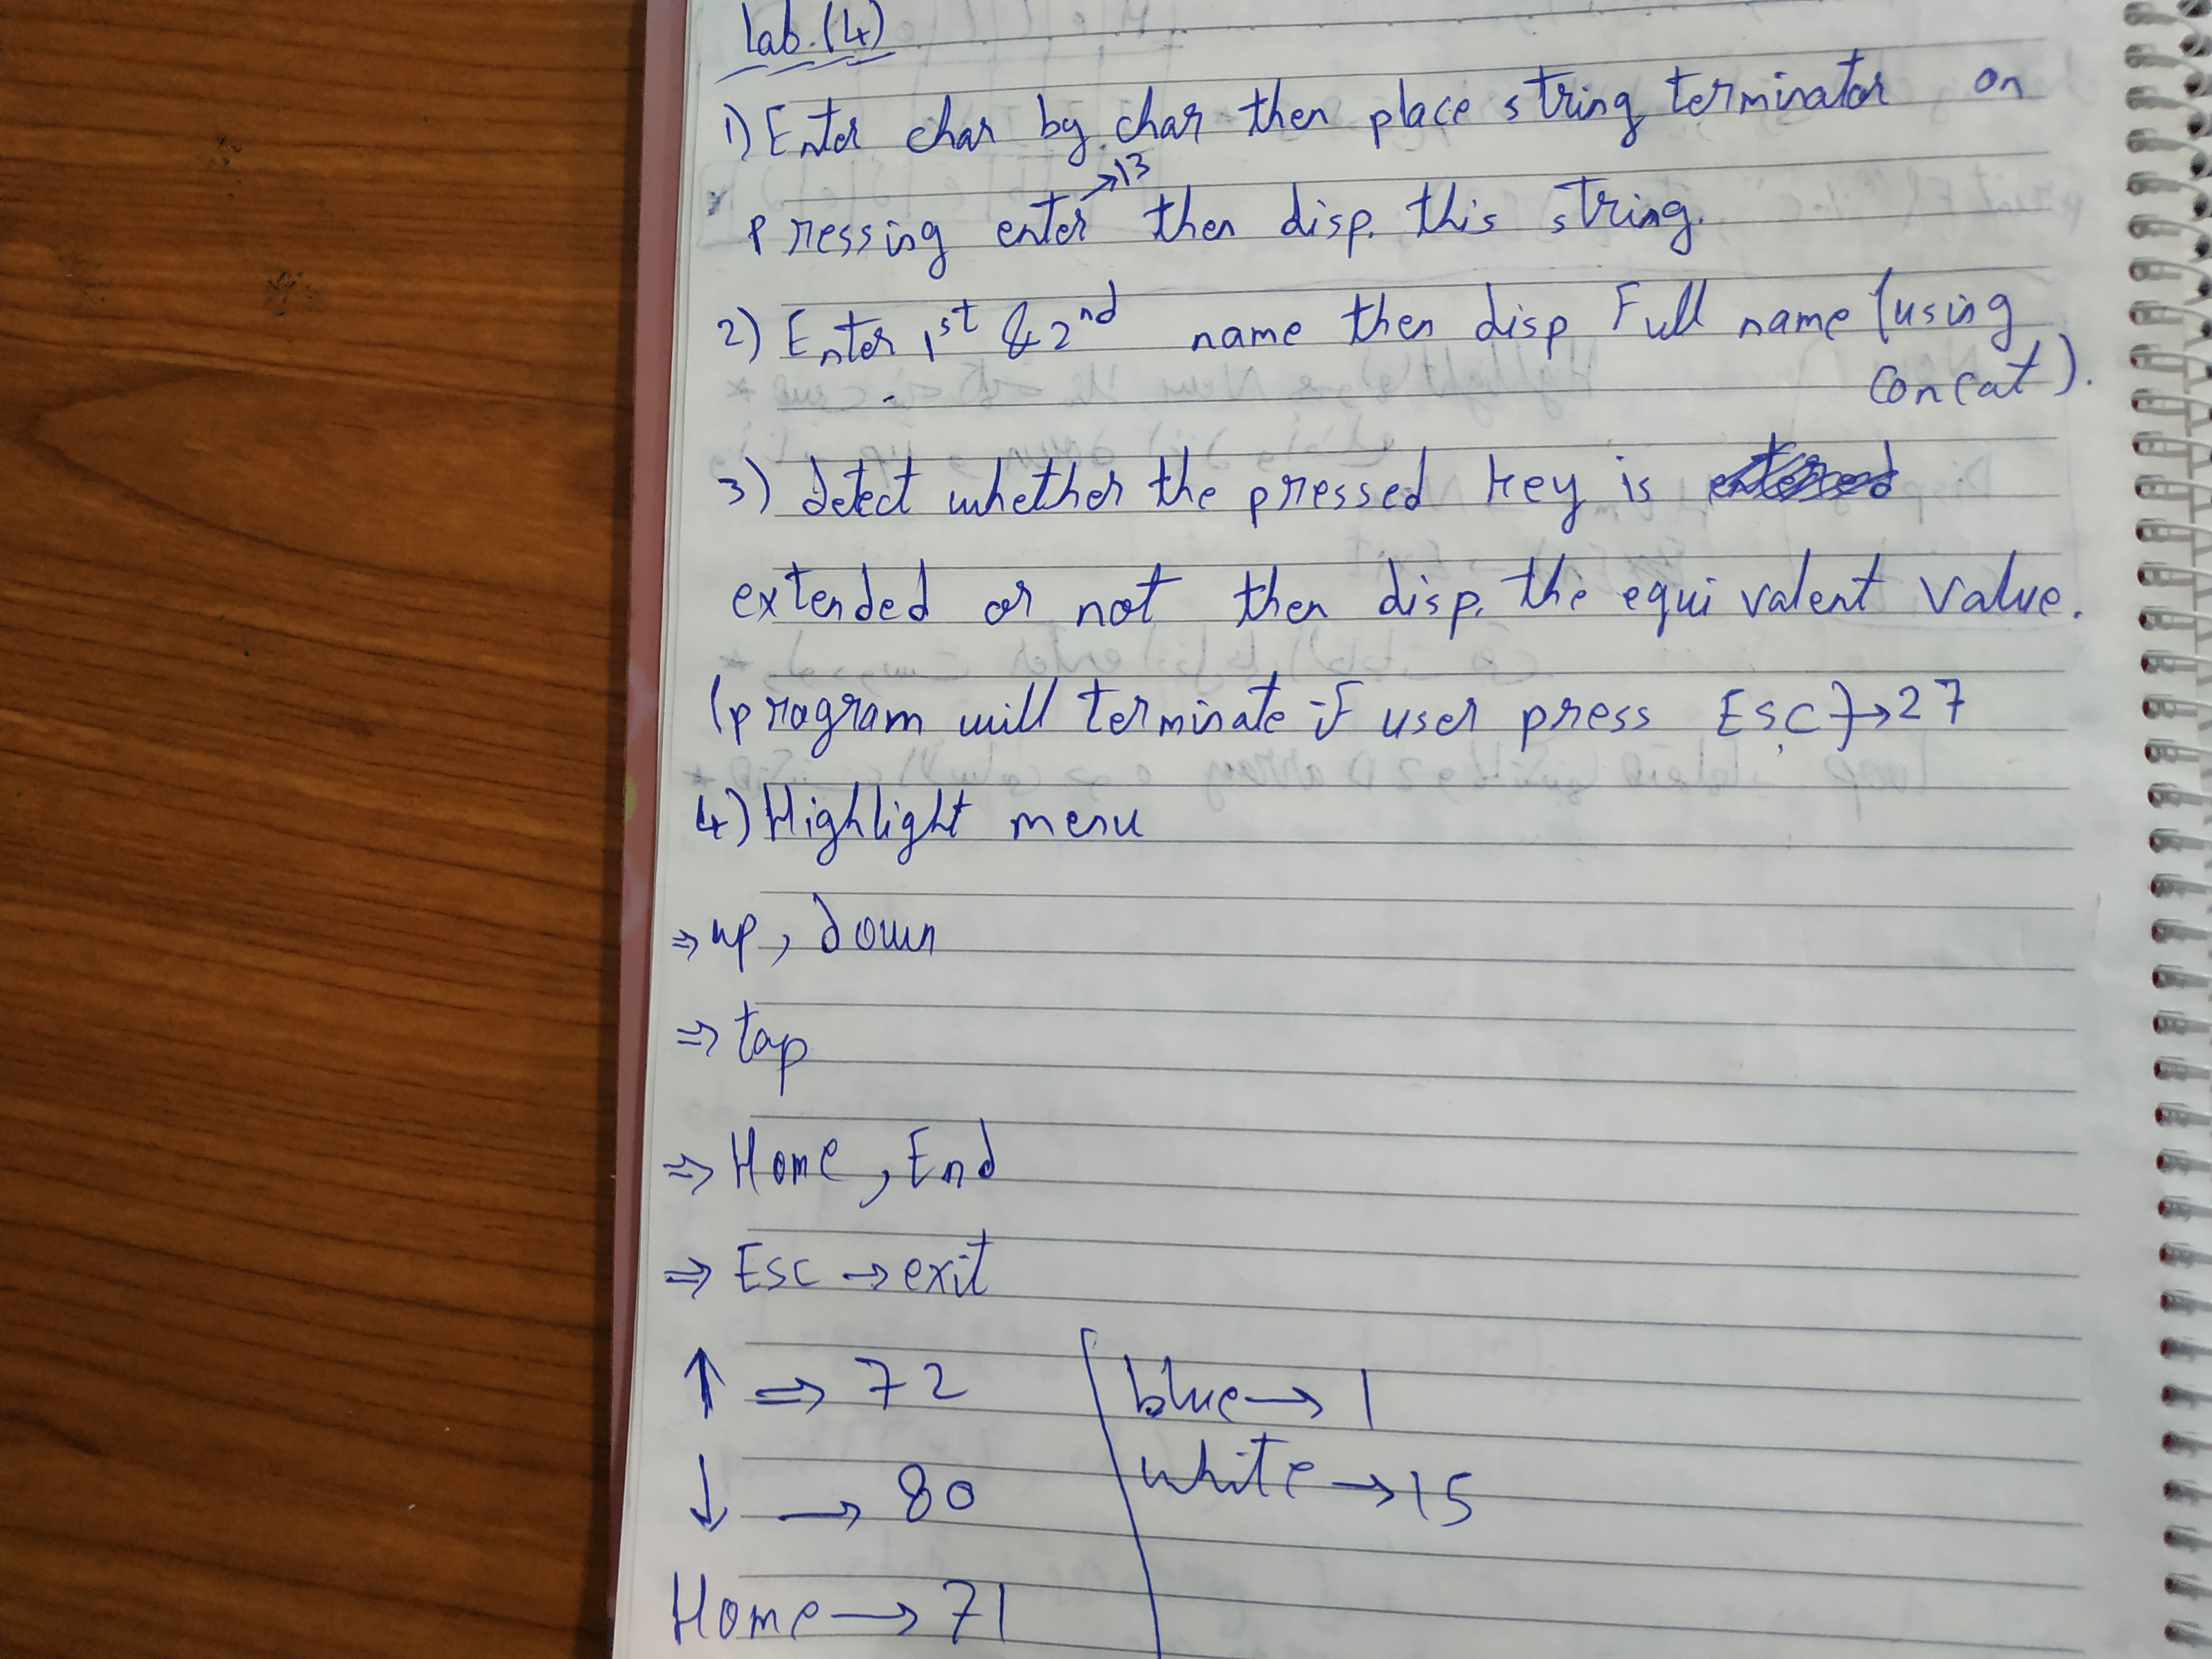 Lab.(4)
1) Enter char by char then place string terminator on
pressing enter →13 then disp. this string.
2) Enter 1st & 2nd name then disp Full name (using
concat).
3) detect whether the pressed key is
extended or not then disp. the equivalent value.
(program will terminate if user press ESC) →27
4) Highlight menu
⇒ up, down
⇒ tap
⇒ Home, End
⇒ Esc → exit
↑ ⇒ 72
blue → 1
↓ → 80
white → 15
Home → 71